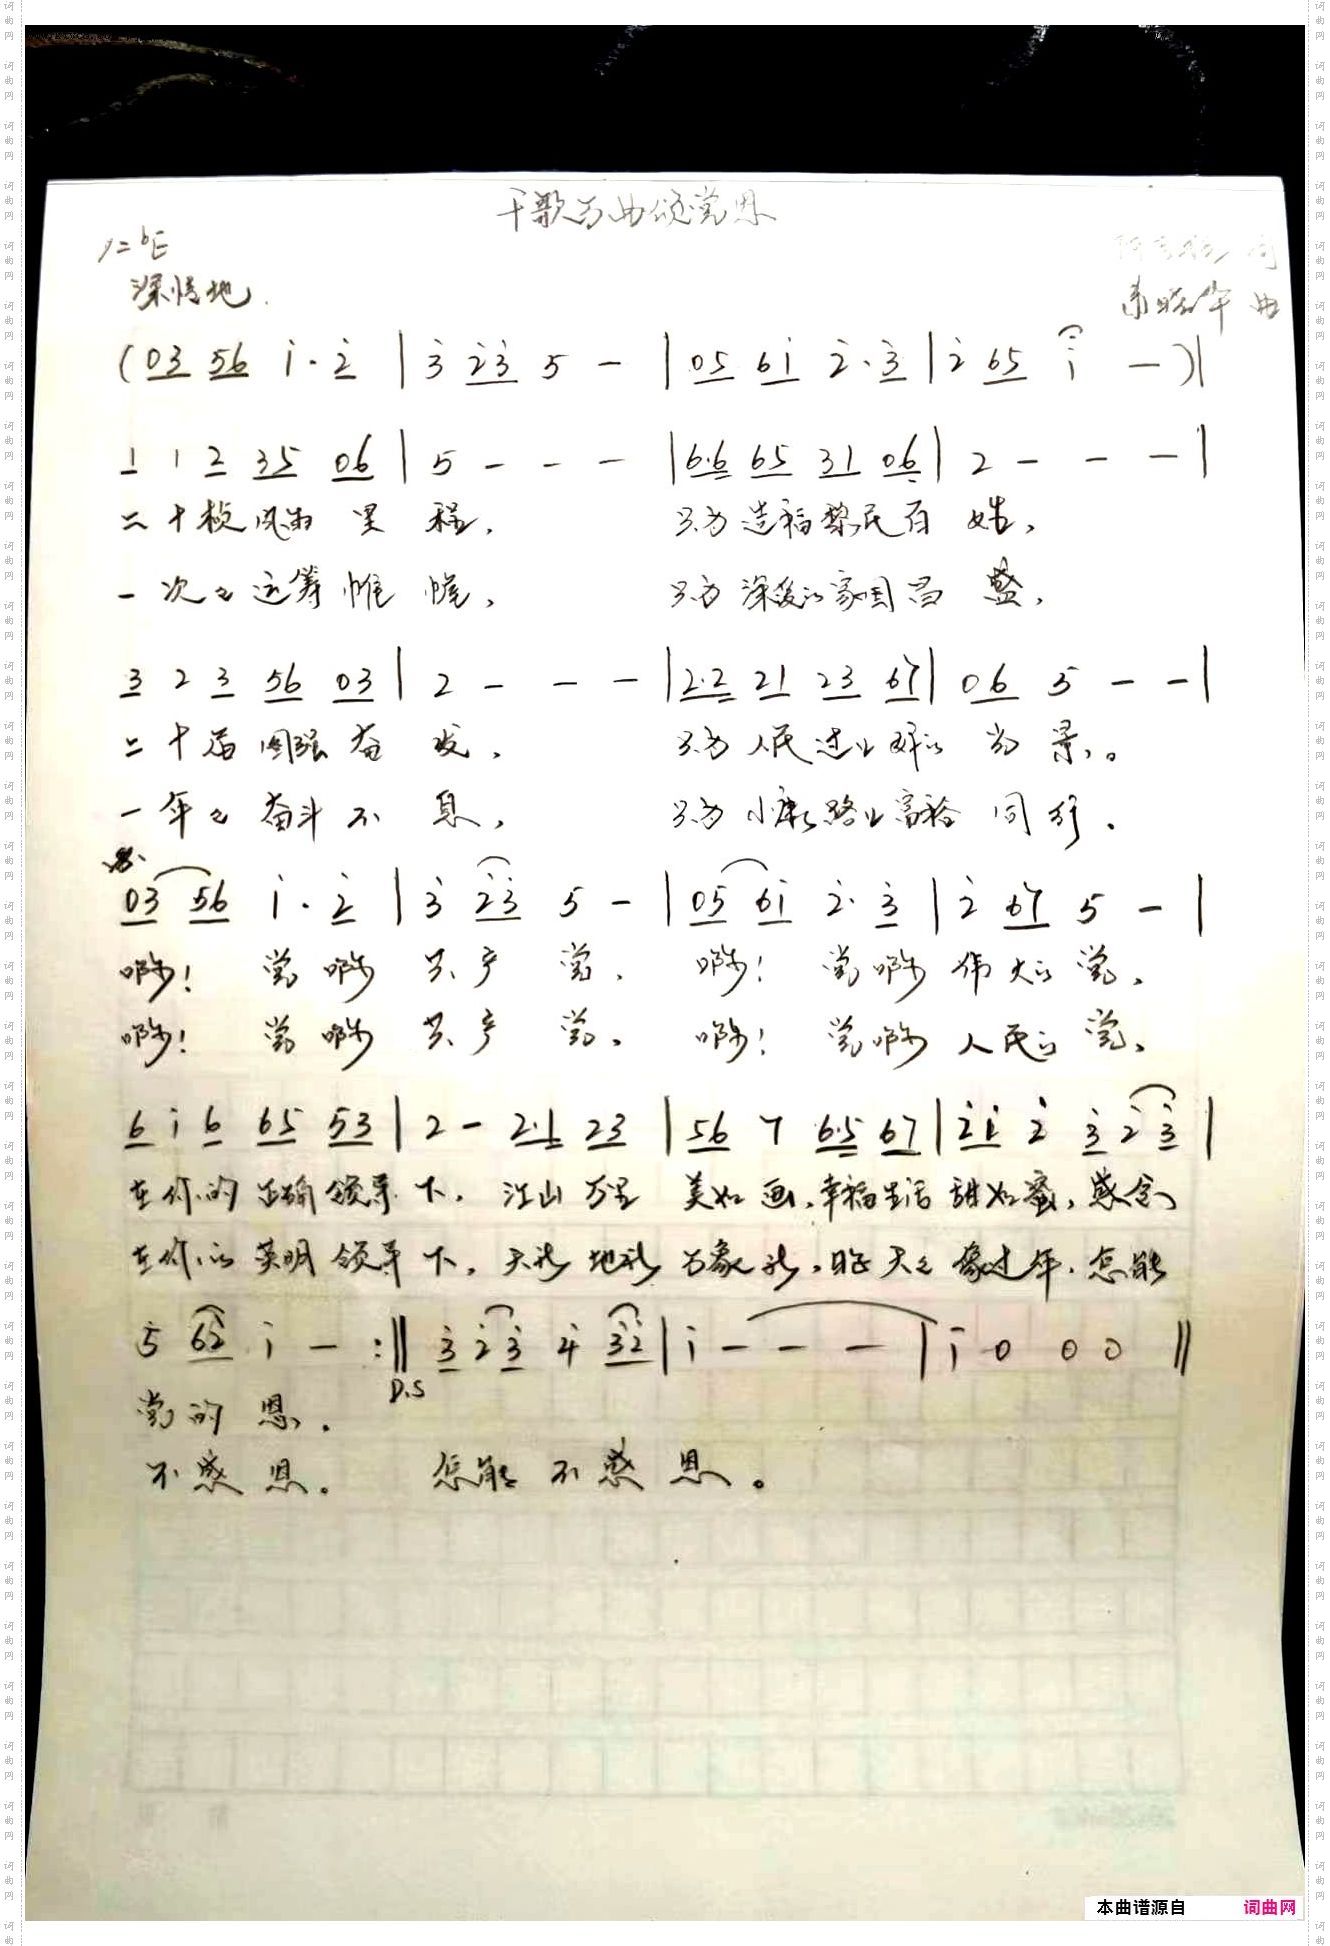 千歌万曲颂党恩
1=bE
词
深情地
曲
(03 56 i· 2̇ | 3̇ 2̇3̇ 5 — | 05 6i 2̇· 3̇ | 2̇ 65 i — )|
1 1 2 35 06 | 5 — — — | 6·6 65 31 06 | 2 — — — |
二十桢风雨里程, 只为造福黎民百姓,
一次々运筹帷幄, 只为深爱的家国昌盛,
3 2 3 56 03 | 2 — — — | 2·2 21 23 67 | 06 5 — — |
二十届图强奋发, 只为人民过上好的光景。
一年々奋斗不息, 只为小康路上富裕同行.
03 56 i· 2̇ | 3̇ 2̇3̇ 5 — | 05 6i 2̇· 3̇ | 2̇ 67 5 — |
啊! 党啊共产党, 啊! 党啊伟大的党,
啊! 党啊共产党, 啊! 党啊人民的党,
6 i 6 65 53 | 2 — 2·1 23 | 56 7 6·5 67 | 2̇i 2̇ 3̇ 2̇ 3̇ |
在你的正确领导下, 江山万里美如画,幸福生活甜如蜜,感念
在你的英明领导下, 天新地新万象新,日子天天像过年,怎能
5 62̇ i — :‖ 3̇ 2̇ 3̇ 4̇ 3̇2̇ | i — — — | i 0 0 0 ‖
D.S
党的恩.
不感恩. 怎能不感恩。
本曲谱源自 词曲网